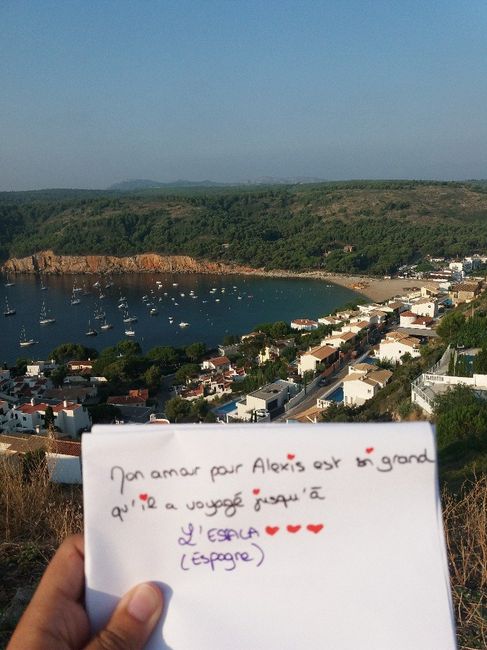 Mon amour pour Alexis est si grand
qu'il a voyagé jusqu'à
L'ESTACA ❤❤❤
(Espagne)